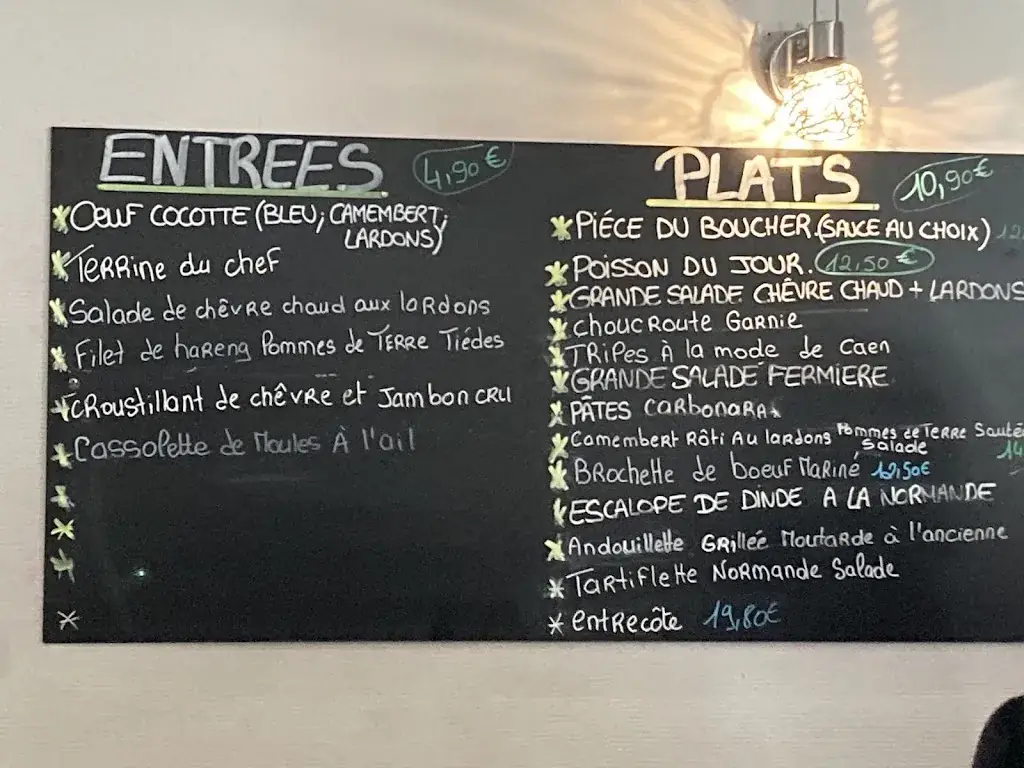 ENTREES 4,90 €
OEUF COCOTTE (BLEU, CAMEMBERT,
LARDONS)
Terrine du chef
Salade de chêvre chaud aux lardons
Filet de hareng Pommes de Terre Tiédes
Croustillant de chêvre et Jambon cru
Cassolette de Moules À l'ail
PLATS 10,90 €
PIÉCE DU BOUCHER (SAUCE AU CHOIX)
POISSON DU JOUR. 12,50 €
GRANDE SALADE CHÊVRE CHAUD + LARDONS
chouc Route Garnie
TRIPES À la mode de Caen
GRANDE SALADE FERMIERE
PÂTES CARBONARA
Camembert Rôti Au lardons Pommes de Terre Sauté
Salade 14
Brochette de boeuf Mariné
ESCALOPE DE DINDE A LA NORMANDE
Andouillette Grillée Moutarde à l'ancienne
Tartiflette Normande Salade
entrecôte 19,80€